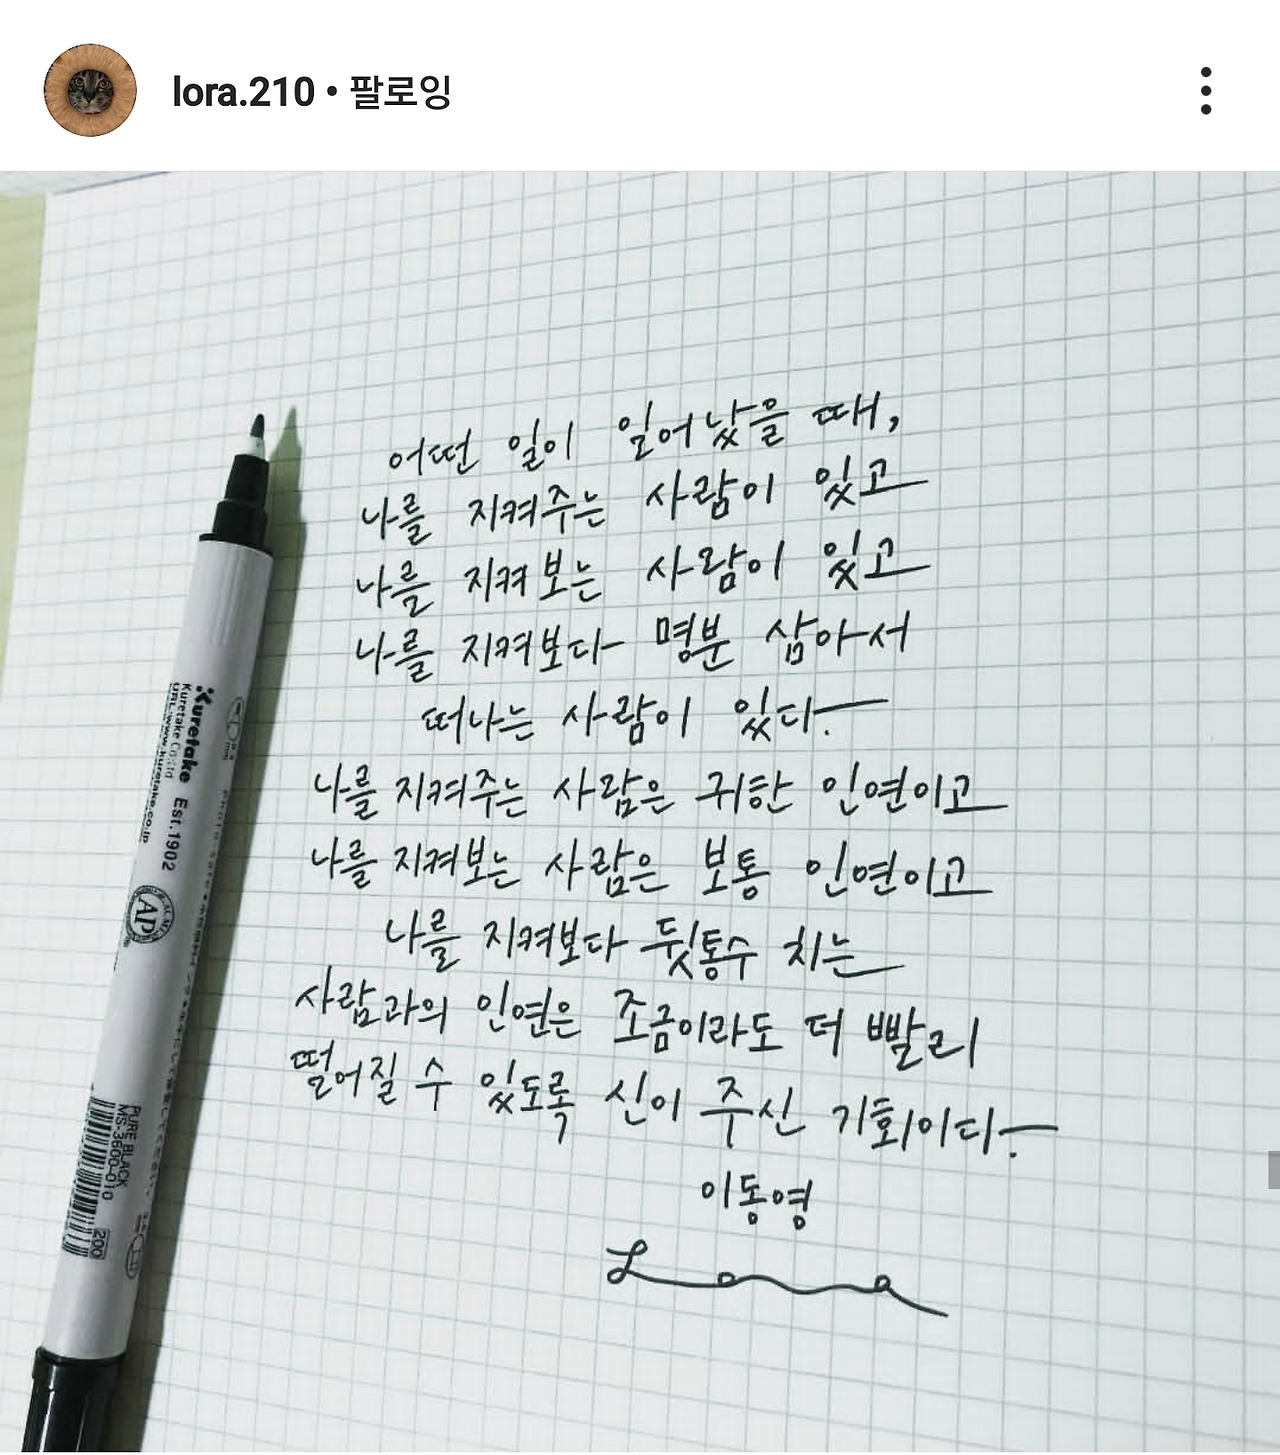 lora.210 • 팔로잉
어떤 일이 일어났을 때,
나를 지켜주는 사람이 있고
나를 지켜보는 사람이 있고
나를 지켜보다 명분 삼아서
떠나는 사람이 있다.
나를 지켜주는 사람은 귀한 인연이고
나를 지켜보는 사람은 보통 인연이고
나를 지켜보다 뒷통수 치는
사람과의 인연은 조금이라도 더 빨리
떨어질 수 있도록 신이 주신 기회이다.
이동영
Lora
Kuretake Est.1902
Kuretake Co.Ltd
URL:www.kuretake.co.jp
AP
PURE BLACK
MS-3600-010
200